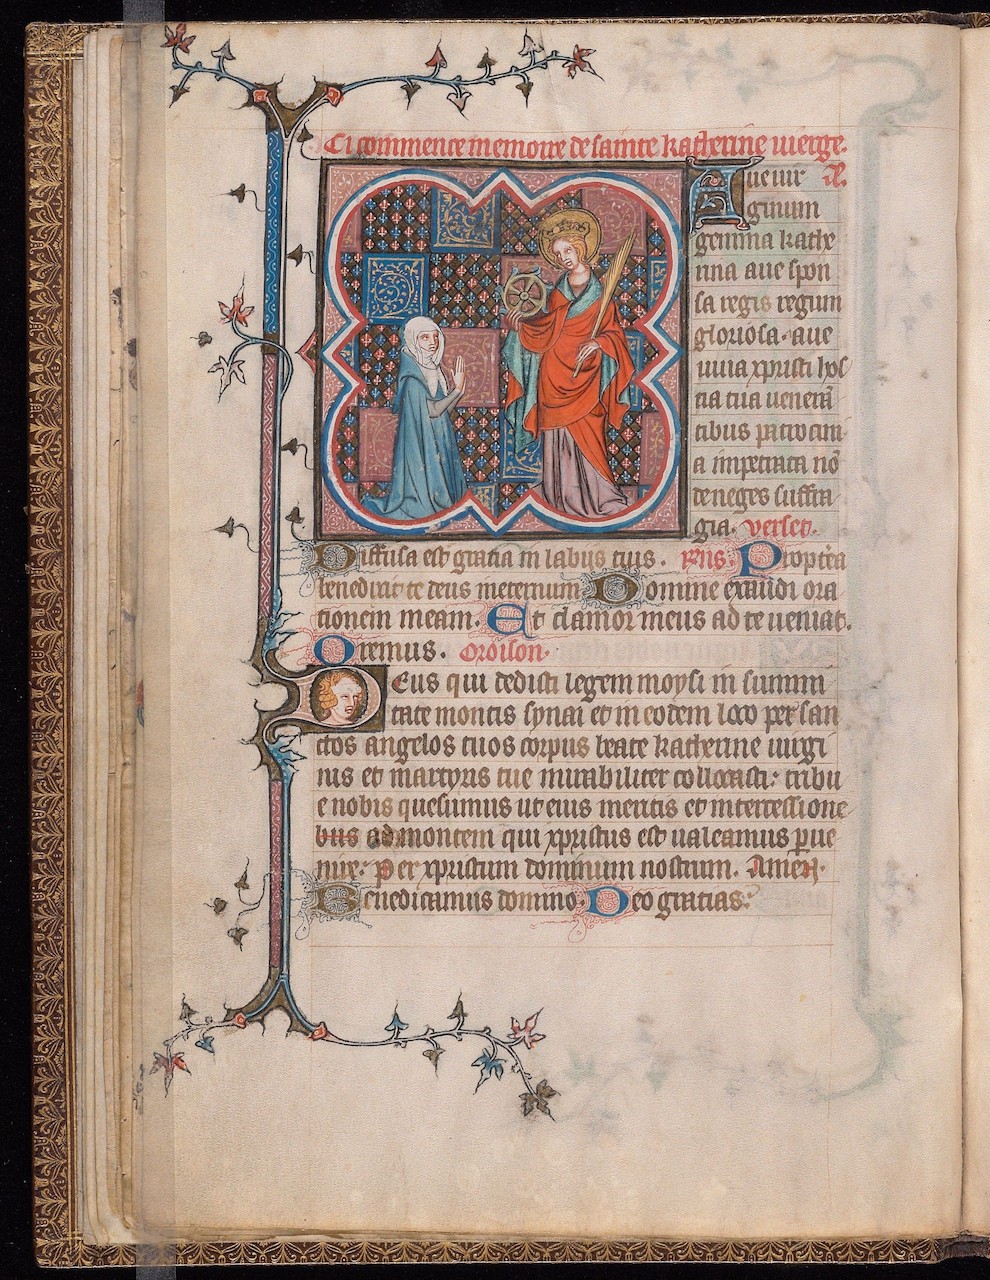 Ci commence memoire de sainte katherine uierge.
Aue uir an̄.
ginum
gemma kathe
rina aue spon
sa regis regum
gloriosa. aue
uiua xpristi hos
tia tua uenerā
tibus patrocini
a impetrata nō
deneges suffra
gia. verset.
Diffusa est gratia in labiis tuis. Rns. Propterea
benedixit te deus ineternum Domine exaudi ora
tionem meam. Et clamor meus ad te ueniat.
Oremus. Oroison.
Deus qui dedisti legem moysi in summi
tate montis synai et in eodem loco per san
ctos angelos tuos corpus beate katherine uirgi
nis et martyris tue mirabiliter collocasti: tribu
e nobis quesumus ut eius meritis et intercessione
bus ad montem qui xpristus est ualeamus perue
nire: Per xpristum dominum nostrum. Amen.
Benedicamus domino. Deo gratias.